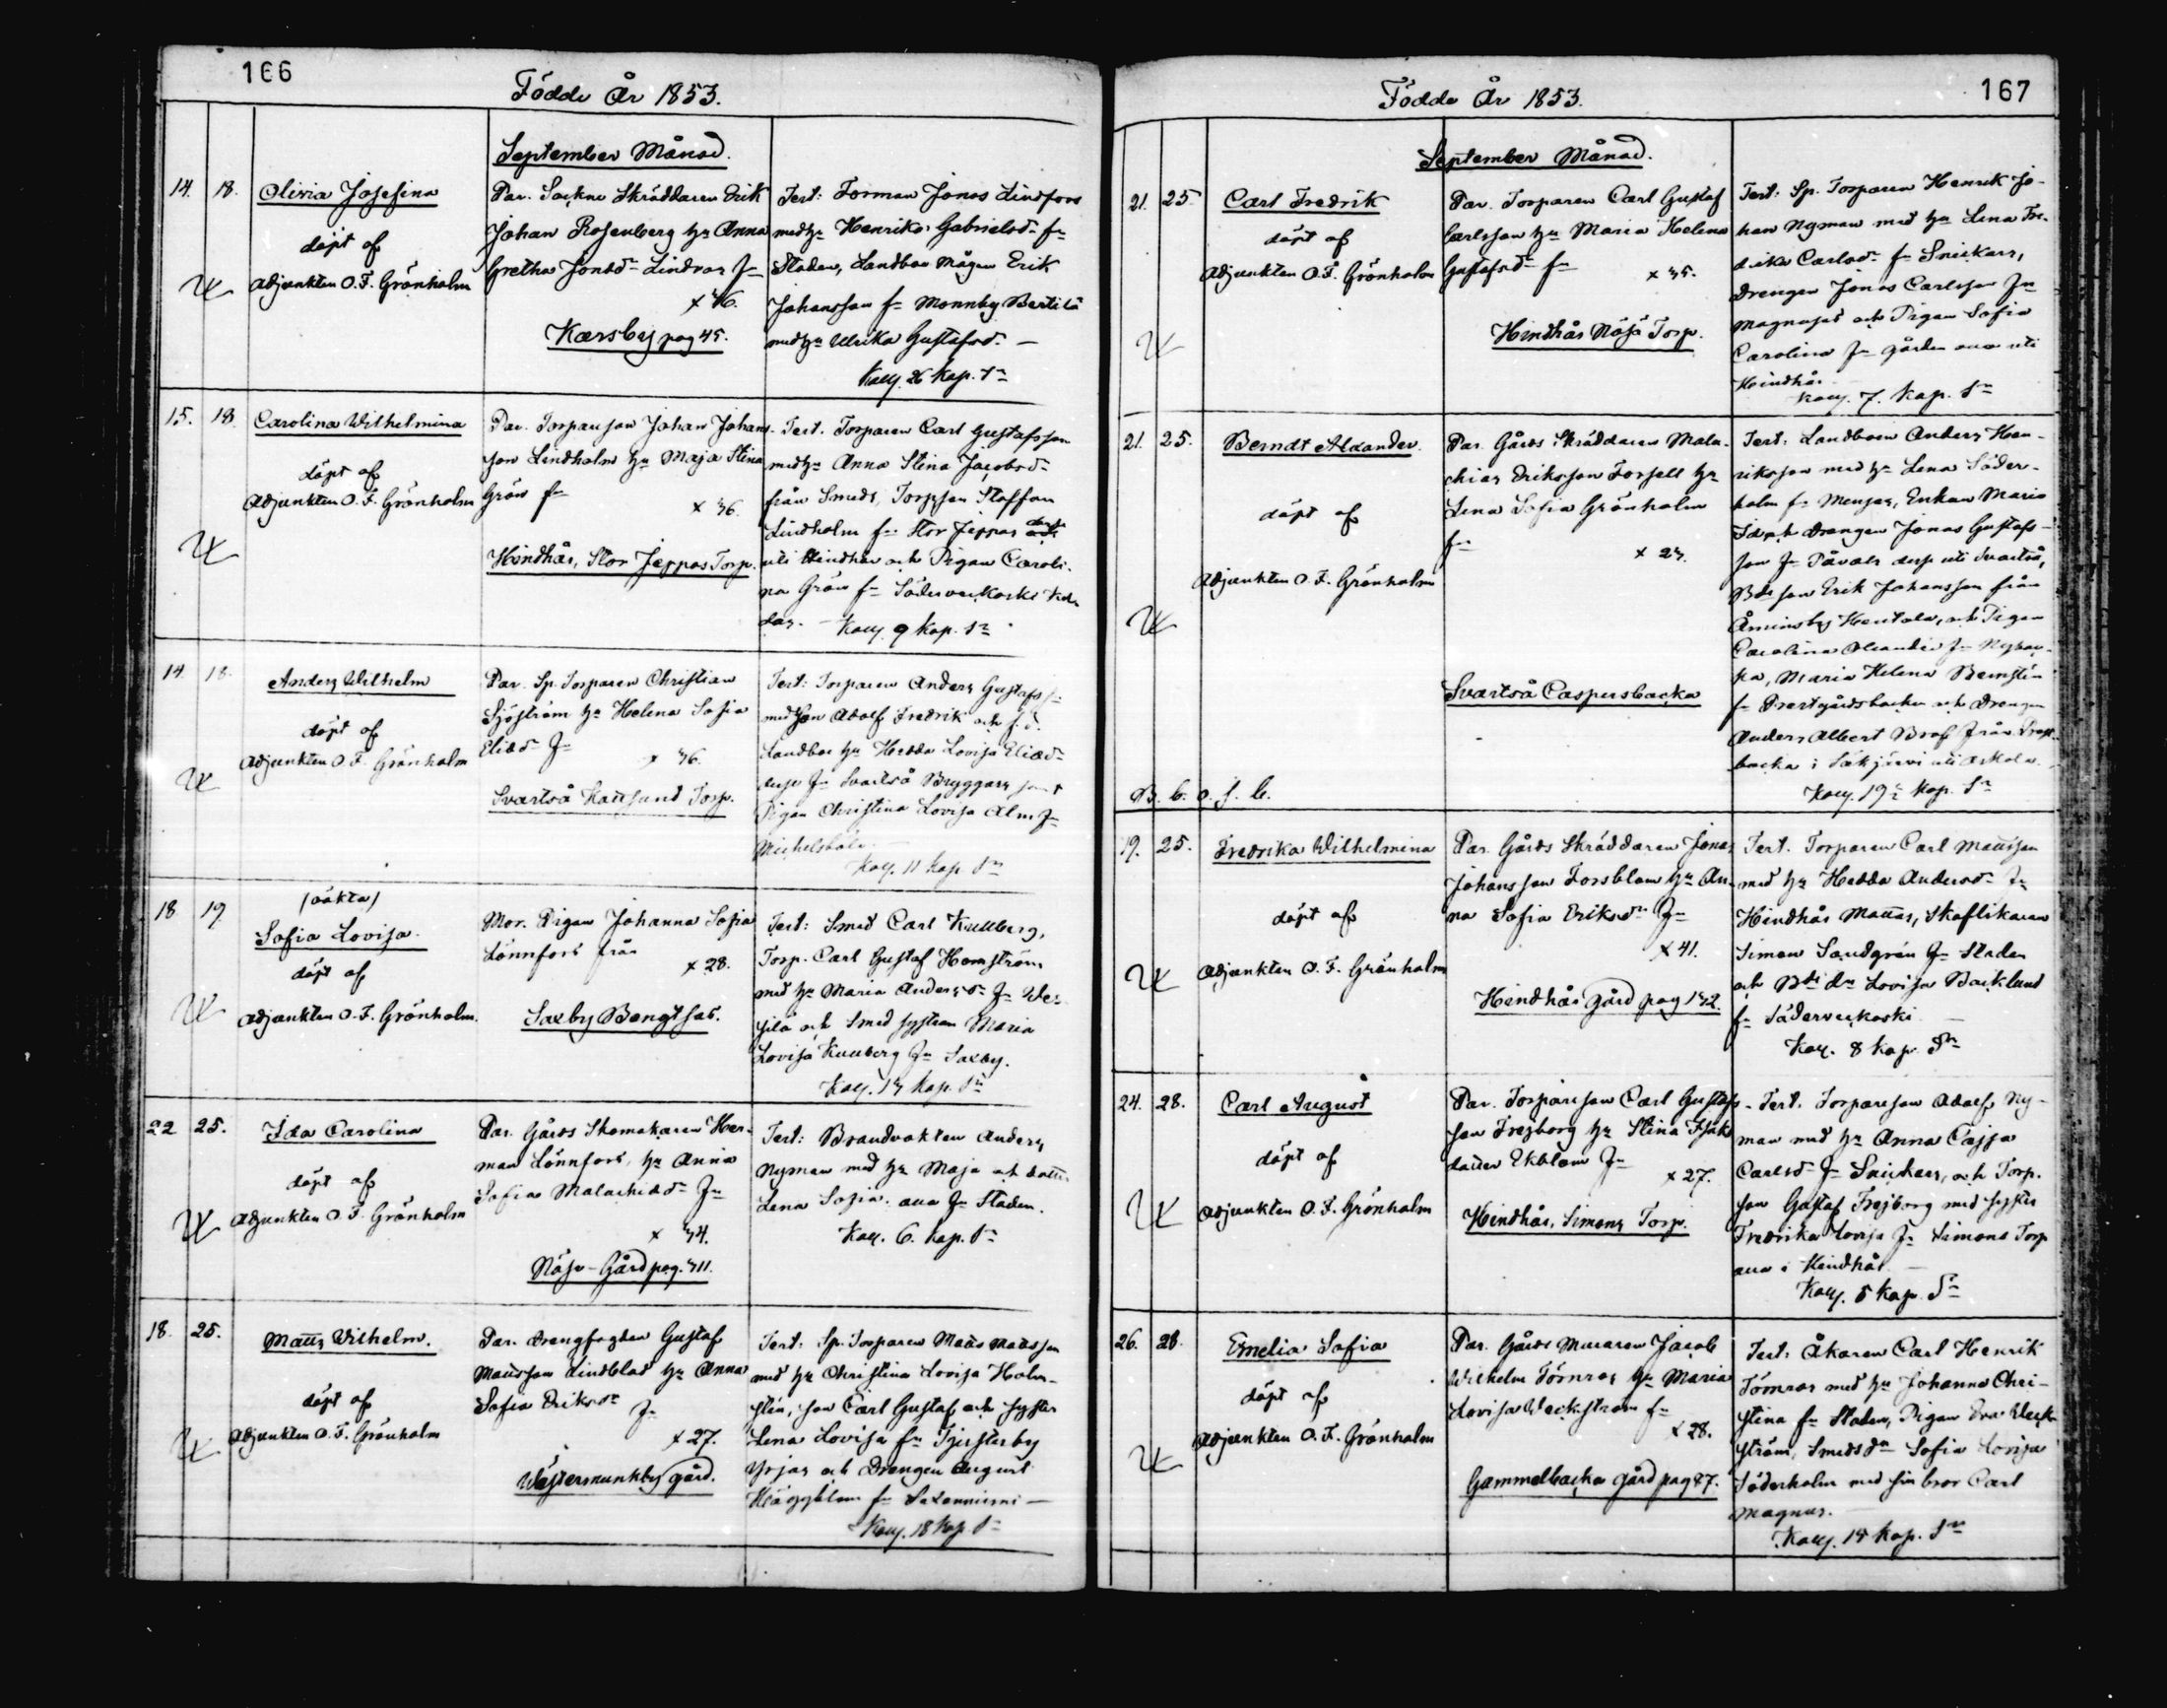 166
Födde År 1853.
September Månad.
14. 18. Olivia Josefina
döpt af
Adjunkten O. F. Grönholm
Par. Sockne Skräddaren Erik
Johan Rosenberg hu Anna
Gretha Jonsdr Lindros fn
x 36.
Karsby pag 45.
Test: Forman Jonas Lindfors
med hu Henrika Gabrielsdr fn
Staden, Landbon Mågen Erik
Johansson fn Monnby Bertilä
med hu Ulrika Gustafsdr
Kall. 26 Kap. Sn
15. 18. Carolina Wilhelmina
döpt af
Adjunkten O. F. Grönholm
Par. Torpareson Johan Johans-
son Lindholm hu Maja Stina
Grön fn
x 36.
Hindhår, Stor Jeppas Torp.
Test. Torparen Carl Gustafsson
med hu Anna Stina Jacobsdr
från Smeds, Torpson Staffan
Lindholm fn Stor Jeppas
uti Hindhår och Pigan Caroli-
na Grön fn Söderveckoski
Kall. 9 Kap. Sn
14 18. Anders Wilhelm
döpt af
Adjunkten O. F. Grönholm
Par. Sp. Torparen Christian
Sjöström hu Helena Sofia
Eliædr fn
x 36.
Svartså Kattsund Torp.
Test: Torparen Anders Gustafss:
med son Adolf Fredrik och f. d.
Landbo hu Hedda Lovisa Eliædr
fn Svartså Bryggars samt
Pigan Christina Lovisa Alm fn
Michelsböle.
Kall. 11 Kap. Sn
18 19. (oäkta)
Sofia Lovisa.
döpt af
Adjunkten O. F. Grönholm.
Mor. Pigan Johanna Sofia
Lönnfors från
x 28.
Saxby Bengtsas.
Test: Smed Carl Kullberg,
Torp. Carl Gustaf Hemström
med hu Maria Andersdr fn
och Smed systern Maria
Lovisa Kullberg fn Saxby.
Kall. 13 Kap. Sn
22 25. Ida Carolina
döpt af
Adjunkten O. F. Grönholm
Par. Gårds Skomakaren Her-
man Lönnfors, hu Anna
Sofia Malachiædr fn
x 34.
Näse-Gård pag. 311.
Test: Brandvakten Anders
Nyman med hu Maja och dottr
Lena Sofia. alla fn Staden.
Kall. 6. Kap. Sn
18. 25. Matts Wilhelm.
döpt af
Adjunkten O. F. Grönholm
Par. Drengfogden Gustaf
Mattsson Lindblad hu Anna
Sofia Eriksdr fn
x 27.
Westermunkby gård.
Test: Sp. Torparen Mats Matsson
med hu Christina Lovisa Holm-
stén, son Carl Gustaf och syster
Lena Lovisa fn Tjusterby
Yrjas och Drengen August
Häggblom fn
Kall. 18 Kap. Sn
167
Födde År 1853.
September Månad.
21. 25. Carl Fredrik
döpt af
Adjunkten O. F. Grönholm
Par. Torparen Carl Gustaf
Carlsson hu Maria Helena
Gustafsdr fn
x 35.
Hindhår Näse Torp.
Test: Sp. Torparen Henrik Jo-
han Nyman med hu Lena Fre-
drika Carlsdr fn Snickars,
Drengen Jonas Carlsson fn
Magnusas och Pigan Sofia
Carolina fn gården alla uti
Hindhår.
Kall. 7. Kap. Sn
21. 25. Berndt Alexander.
döpt af
Adjunkten O. F. Grönholm
Par. Gårds Skräddaren Mala-
chias Eriksson Forsell hu
Lena Sofia Grönholm
fn
x 23.
Svartså Caspersbacka
Test: Landboen Anders Hen-
riksson med hu Lena Söder-
holm fn Mensas, Enkan Maria
Drengen Jonas Gustafs-
son fn Påvals uti Svartså,
Bde son Erik Johansson från
Åminsby Hentala, och Pigan
Carolina fn
Maria Helena Bernstén
fn Prestgårdsbacka och Drengen
Anders Albert Braf från
backa i Säkjärvi uti Askola.
Kall. 19 Kap. Sn
B. b. o. f. b.
19. 25. Fredrika Wilhelmina
döpt af
Adjunkten O. F. Grönholm
Par. Gårds Skräddaren Jonas
Johansson Forsblom hu An-
na Sofia Eriksdr fn
x 41.
Hindhår gård pag 132.
Test. Torparen Carl Mattsson
med hu Hedda Andersdr fn
Hindhår Mattas, Skaftikaren
Simon Sandgrén fn Staden
och Bde dr Lovisa Backlund
fn Söderveckoski
Kall. 8 Kap. Sn
24. 28. Carl August
döpt af
Adjunkten O. F. Grönholm
Par. Torpareson Carl Gustafs-
son Frejborg hu Stina Isaks
dotter Ekblom fn
x 27.
Hindhår, Simons Torp.
Test. Torpareson Adolf Ny-
man med hu Anna Cajsa
Carlsdr fn Snickars, och Torp.
son Gustaf Frejborg med syster
Fredrika Lovisa fn Simons Torp
alla i Hindhår
Kall. 5 Kap. Sn
26. 28. Emelia Sofia
döpt af
Adjunkten O. F. Grönholm
Par. Gårds Muraren Jacob
Wilhelm Törnros hu Maria
Lovisa Weckström fn
x 28.
Gammelbacka gård pag 87.
Test: Åkaren Carl Henrik
Törnros med hu Johanna Chri-
stina fn Staden, Pigan Eva Weck-
ström, Smeds dr Sofia Lovisa
Söderholm med sin bror Carl
Magnus.
Kall. 14 Kap. Sn